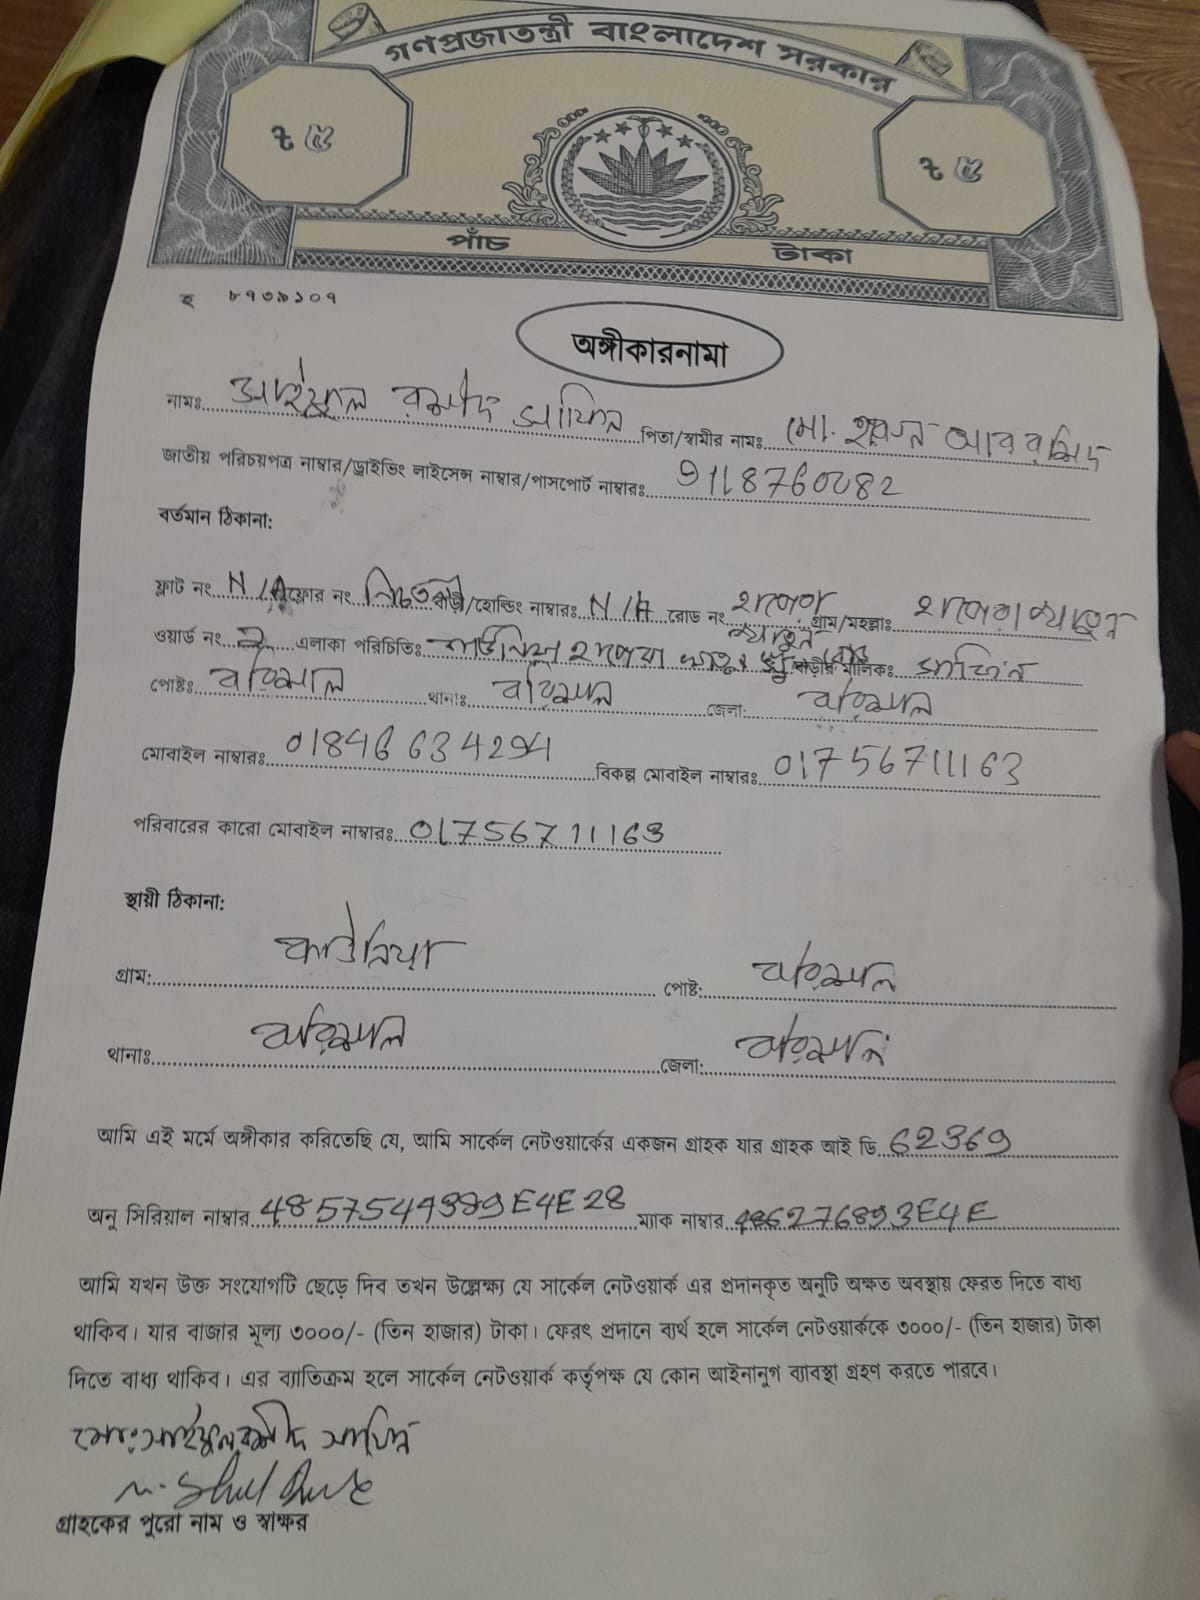 গণপ্রজাতন্ত্রী বাংলাদেশ সরকার
৳ ৫ ৳ ৫
পাঁচ টাকা
হ ৮৭৩৯১০৭
অঙ্গীকারনামা
নামঃ সাইফুল রশীদ সাফিন পিতা/স্বামীর নামঃ মো.
জাতীয় পরিচয়পত্র নাম্বার/ড্রাইভিং লাইসেন্স নাম্বার/পাসপোর্ট নাম্বারঃ 9118760082
বর্তমান ঠিকানা:
ফ্লাট নং N/A ফ্লোর নং হোল্ডিং নাম্বারঃ N/A রোড নং গ্রাম/মহল্লাঃ
ওয়ার্ড নং 2 এলাকা পরিচিতিঃ কাউনিয়া মালিকঃ সাফিন
পোষ্টঃ বরিশাল থানাঃ বরিশাল জেলা: বরিশাল
মোবাইল নাম্বারঃ 01846634294 বিকল্প মোবাইল নাম্বারঃ 01756711163
পরিবারের কারো মোবাইল নাম্বারঃ 01756711163
স্থায়ী ঠিকানা:
গ্রাম: কাউনিয়া পোষ্ট: বরিশাল
থানাঃ বরিশাল জেলা: বরিশাল
আমি এই মর্মে অঙ্গীকার করিতেছি যে, আমি সার্কেল নেটওয়ার্কের একজন গ্রাহক যার গ্রাহক আই ডি 62369
অনু সিরিয়াল নাম্বার 48575449389E4E28 ম্যাক নাম্বার
আমি যখন উক্ত সংযোগটি ছেড়ে দিব তখন উল্লেক্ষ্য যে সার্কেল নেটওয়ার্ক এর প্রদানকৃত অনুটি অক্ষত অবস্থায় ফেরত দিতে বাধ্য
থাকিব। যার বাজার মূল্য ৩০০০/- (তিন হাজার) টাকা। ফেরৎ প্রদানে ব্যর্থ হলে সার্কেল নেটওয়ার্ককে ৩০০০/- (তিন হাজার) টাকা
দিতে বাধ্য থাকিব। এর ব্যাতিক্রম হলে সার্কেল নেটওয়ার্ক কর্তৃপক্ষ যে কোন আইনানুগ ব্যাবস্থা গ্রহণ করতে পারবে।
মোঃ সাইফুল রশীদ সাফিন
গ্রাহকের পুরো নাম ও স্বাক্ষর